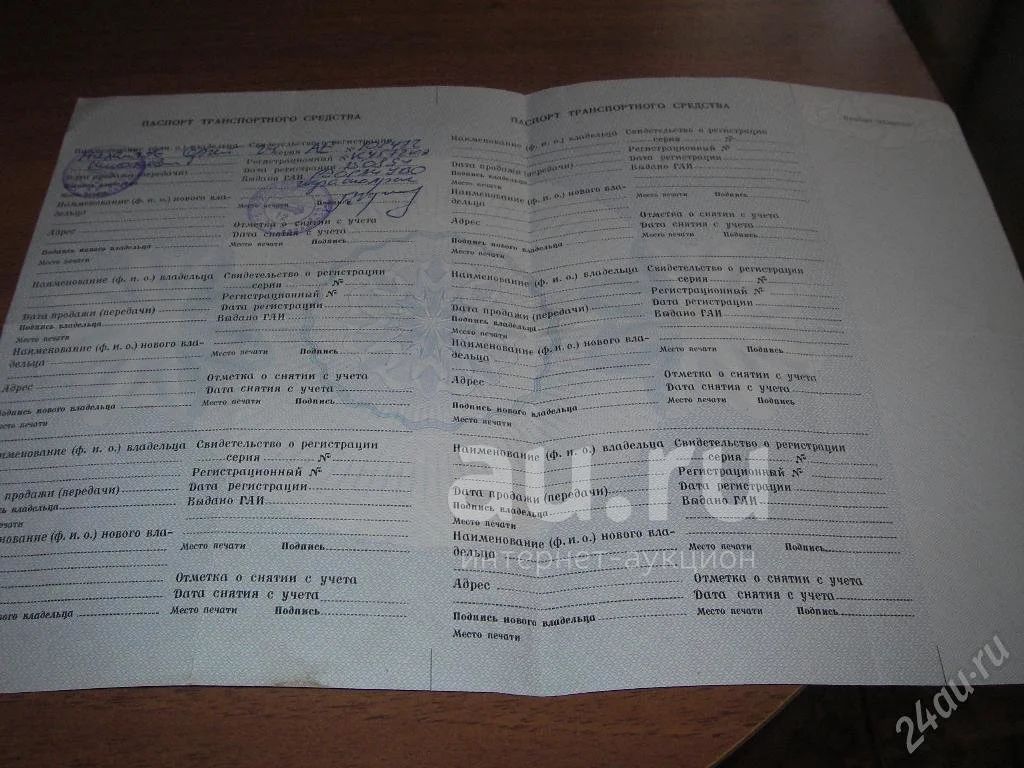 ПАСПОРТ ТРАНСПОРТНОГО СРЕДСТВА
Свидетельство о регистрации
серия №
Регистрационный №
Дата продажи (передачи) Дата регистрации
Выдано ГАИ
Наименование (ф. и. о.) нового вла-
дельца Место печати
Адрес Отметка о снятии с учета
Дата снятия с учета
Подпись нового владельца Место печати Подпись
Место печати
Наименование (ф. и. о.) владельца Свидетельство о регистрации
серия №
Регистрационный №
Дата продажи (передачи) Дата регистрации
Подпись владельца Выдано ГАИ
Место печати
Наименование (ф. и. о.) нового вла-
дельца Место печати Подпись
Адрес Отметка о снятии с учета
Дата снятия с учета
Подпись нового владельца Место печати Подпись
Место печати
Наименование (ф. и. о.) владельца Свидетельство о регистрации
серия №
Регистрационный №
продажи (передачи) Дата регистрации
владельца Выдано ГАИ
печати
(ф. и. о.) нового вла-
Место печати Подпись
Отметка о снятии с учета
Дата снятия с учета
нового владельца Место печати Подпись
ПАСПОРТ ТРАНСПОРТНОГО СРЕДСТВА
Наименование (ф. и. о.) владельца Свидетельство о регистрации
серия №
Регистрационный №
Дата продажи (передачи) Дата регистрации
Подпись владельца Выдано ГАИ
Место печати
Наименование (ф. и. о.) нового вла-
дельца Место печати Подпись
Адрес Отметка о снятии с учета
Дата снятия с учета
Подпись нового владельца Место печати Подпись
Место печати
Наименование (ф. и. о.) владельца Свидетельство о регистрации
серия №
Регистрационный №
Дата продажи (передачи) Дата регистрации
Подпись владельца Выдано ГАИ
Место печати
Наименование (ф. и. о.) нового вла-
дельца Место печати Подпись
Адрес Отметка о снятии с учета
Дата снятия с учета
Подпись нового владельца Место печати Подпись
Место печати
Наименование (ф. и. о.) владельца Свидетельство о регистрации
серия №
Регистрационный №
Дата продажи (передачи) Дата регистрации
Подпись владельца Выдано ГАИ
Место печати
Наименование (ф. и. о.) нового вла-
дельца Место печати Подпись
Адрес Отметка о снятии с учета
Дата снятия с учета
Подпись нового владельца Место печати Подпись
Место печати
au.ru
интернет-аукцион
24au.ru